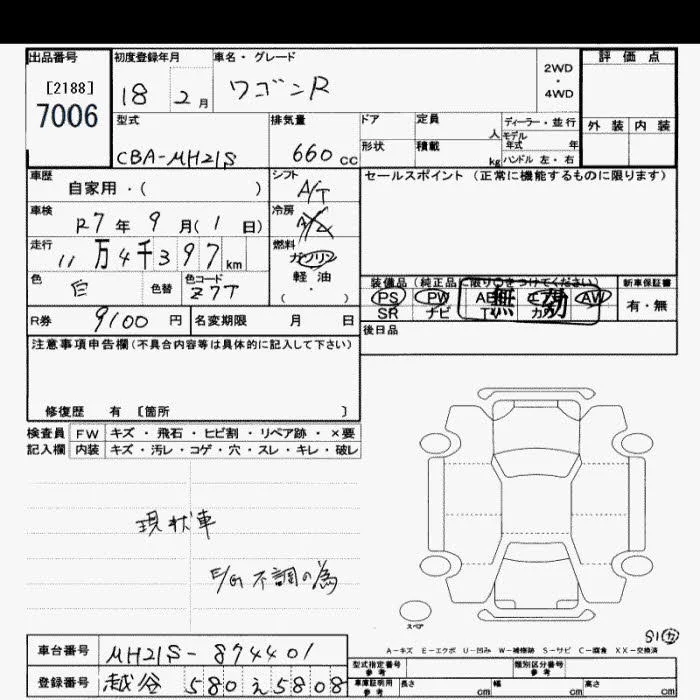 出品番号
[2188]
7006
初度登録年月
18 2月
車名・グレード
ワゴンR
2WD
・
4WD
評価点
外装 内装
型式
CBA-MH21S
排気量
660 cc
ドア
定員
人
形状
積載
kg
ディーラー・並行
モデル
年式 年
ハンドル 左・右
車歴
自家用・( )
シフト
A/T
セールスポイント(正常に機能するものに限ります)
車検
R7年 9月(1日)
冷房
走行
11万4千397km
燃料
ガソリン
軽油
( ・ )
色
白
色替
色コード
Z7T
装備品(純正品に限り○をつけてください)
PS PW AB エアB AW
SR ナビ TV カワ
無効
新車保証書
有・無
R券
9100円
名変期限 月 日
後日品
注意事項申告欄(不具合内容等は具体的に記入して下さい)
修復歴 有 [箇所 ]
検査員
記入欄
FW キズ・飛石・ヒビ割・リペア跡・×要
内装 キズ・汚レ・コゲ・穴・スレ・キレ・破レ
現状車
E/G 不調の為
スペア
A-キズ E-エクボ U-凹み W-補修跡 S-サビ C-腐食 XX-交換済
車台番号
MH21S-874401
登録番号
越谷 580 え 5808
型式指定番号
参考
類別区分番号
参考
車庫証明用
参考
長さ cm
幅 cm
高さ cm